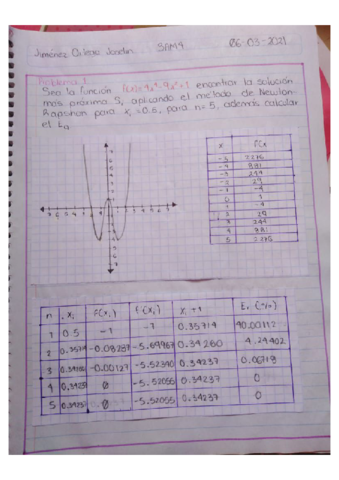 Jiménez Jordin 5AM9 06-03-2021
Problema 1
Sea la función f(x)=4x⁴-9x²+1 encontrar la solución
más próxima S, aplicando el método de Newton
Rapsinon para x, =0.5, para n=5, además calcular
el Ea
x f(x
-5 2276
-4 881
-3
-2 29
-1 -4
0 1
1 -4
2 29
3 244
4 881
5 2276
n xi F(xi) f'(xi) xi+1 Er (%)
1 0.5 -1 -7 0.35714
2 0.35714 -0.08287 -5.69967 0.34260 4.24402
3 -0.00127 -5.52390 0.34237 0.06719
4 0.34237 0 -5.52055 0.34237 0
5 0.34237 0 -5.52055 0.34237 0